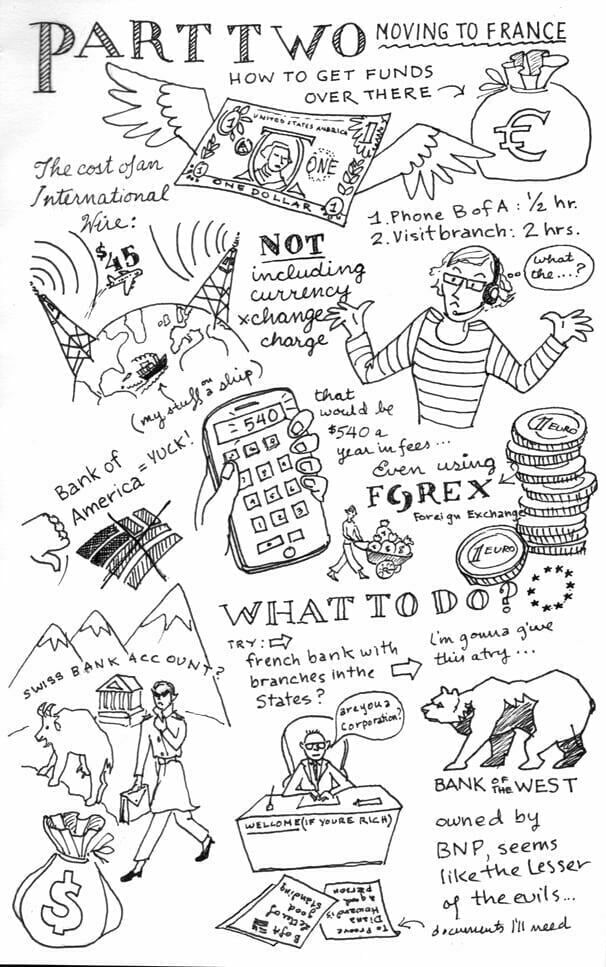 PART TWO
MOVING TO FRANCE
HOW TO GET FUNDS
OVER THERE
UNITED STATES AMERICA
1
1
ONE
1
1
ONE DOLLAR
€
The cost of an
International
Wire:
$45
NOT
including
currency
xchange
charge
1. Phone B of A : ½ hr.
2. Visit branch: 2 hrs.
what
the...?
(my stuff on
a ship)
540
that
would be
$540 a
year in fees...
Even using
FOREX
Foreign Exchange
1 EURO
1 EURO
Bank of
America = YUCK!
$ $ $
WHAT TO DO?
TRY:
french bank with
branches in the
States?
i'm gonna give
this a try...
SWISS BANK ACCOUNT?
are you a
Corporation?
WELCOME (IF YOURE RICH)
BANK OF THE WEST
owned by
BNP, seems
like the lesser
of the evils...
documents I'll need
$
B of A
letter of
good
standing
To Proove
Diana
Howard is
a good
person